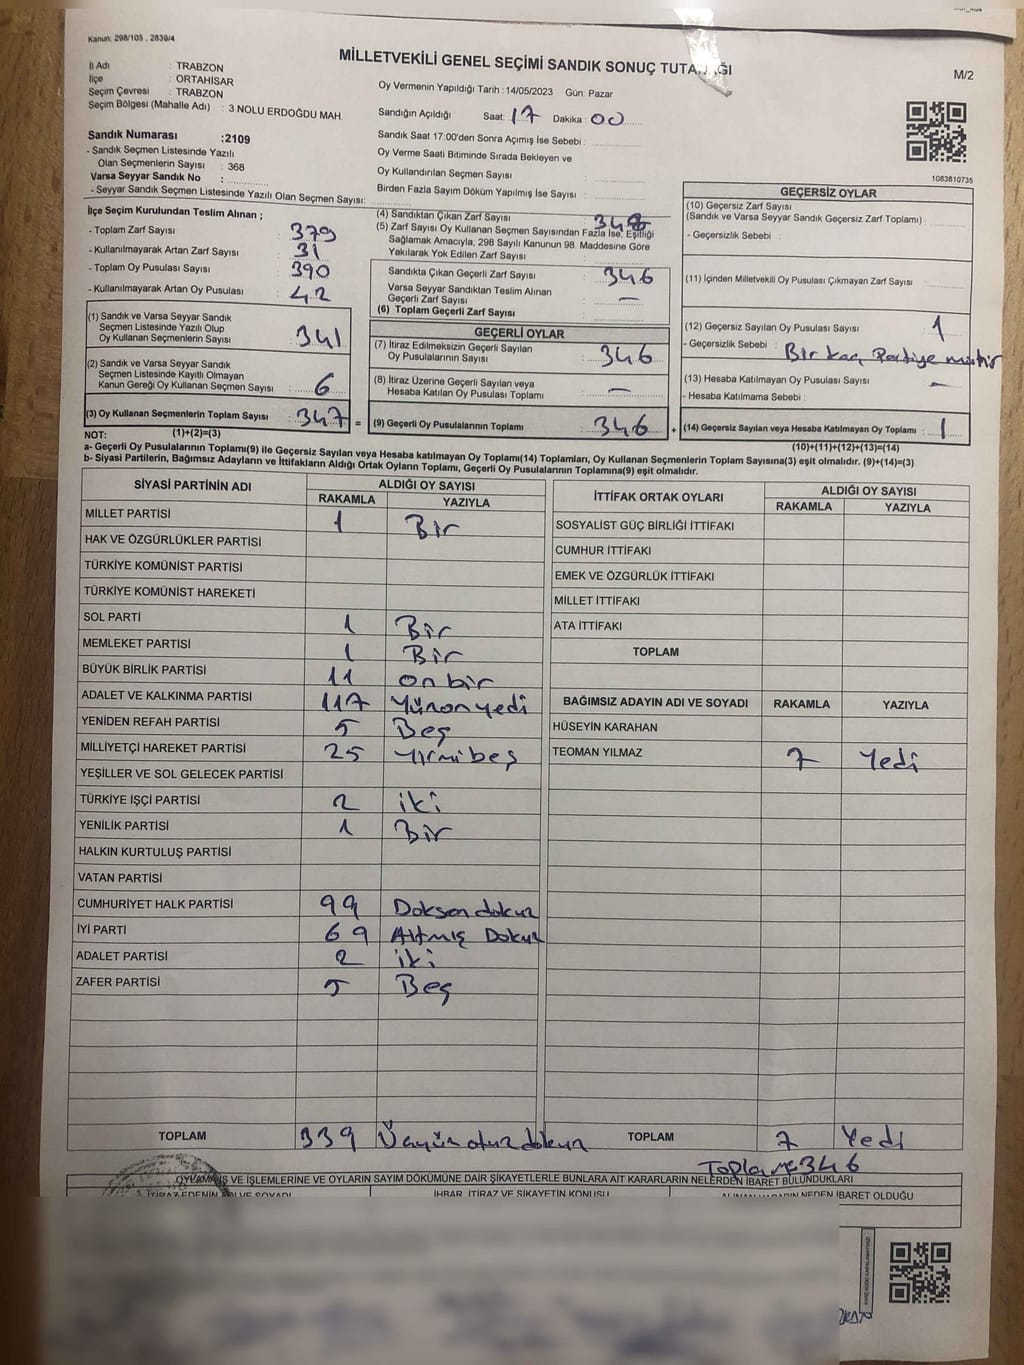 Kanun: 298/105 , 2839/4
MİLLETVEKİLİ GENEL SEÇİMİ SANDIK SONUÇ
M/2
İl Adı : TRABZON
İlçe : ORTAHİSAR
Seçim Çevresi : TRABZON
Seçim Bölgesi (Mahalle Adı) : 3 NOLU ERDOĞDU MAH.
Sandık Numarası :2109
- Sandık Seçmen Listesinde Yazılı
Olan Seçmenlerin Sayısı : 368
Varsa Seyyar Sandık No :
- Seyyar Sandık Seçmen Listesinde Yazılı Olan Seçmen Sayısı:
Oy Vermenin Yapıldığı Tarih :14/05/2023 Gün: Pazar
Sandığın Açıldığı Saat: 17 Dakika : 00
Sandık Saat 17:00'den Sonra Açımış İse Sebebi :
Oy Verme Saati Bitiminde Sırada Bekleyen ve
Oy Kullandırılan Seçmen Sayısı :
Birden Fazla Sayım Döküm Yapılmış İse Sayısı :
1083810735
İlçe Seçim Kurulundan Teslim Alınan ;
- Toplam Zarf Sayısı : 379
- Kullanılmayarak Artan Zarf Sayısı : 31
- Toplam Oy Pusulası Sayısı : 390
- Kullanılmayarak Artan Oy Pusulası : 42
(1) Sandık ve Varsa Seyyar Sandık
Seçmen Listesinde Yazılı Olup
Oy Kullanan Seçmenlerin Sayısı : 341
(2) Sandık ve Varsa Seyyar Sandık
Seçmen Listesinde Kayıtlı Olmayan
Kanun Gereği Oy Kullanan Seçmen Sayısı : 6
(3) Oy Kullanan Seçmenlerin Toplam Sayısı : 347 =
(1)+(2)=(3)
(4) Sandıktan Çıkan Zarf Sayısı
(5) Zarf Sayısı Oy Kullanan Seçmen Sayısından Fazla İse, Eşitliği
Sağlamak Amacıyla, 298 Sayılı Kanunun 98. Maddesine Göre
Yakılarak Yok Edilen Zarf Sayısı :
Sandıkta Çıkan Geçerli Zarf Sayısı : 346
Varsa Seyyar Sandıktan Teslim Alınan
Geçerli Zarf Sayısı : —
(6) Toplam Geçerli Zarf Sayısı :
GEÇERLİ OYLAR
(7) İtiraz Edilmeksizin Geçerli Sayılan
Oy Pusulalarının Sayısı : 346
(8) İtiraz Üzerine Geçerli Sayılan veya
Hesaba Katılan Oy Pusulası Toplamı : —
(9) Geçerli Oy Pusulalarının Toplamı : 346 +
GEÇERSİZ OYLAR
(10) Geçersiz Zarf Sayısı
(Sandık ve Varsa Seyyar Sandık Geçersiz Zarf Toplamı) :
- Geçersizlik Sebebi :
(11) İçinden Milletvekili Oy Pusulası Çıkmayan Zarf Sayısı :
(12) Geçersiz Sayılan Oy Pusulası Sayısı : 1
- Geçersizlik Sebebi : Bir kaç Partiye
(13) Hesaba Katılmayan Oy Pusulası Sayısı : —
- Hesaba Katılmama Sebebi :
(14) Geçersiz Sayılan veya Hesaba Katılmayan Oy Toplamı : 1
(10)+(11)+(12)+(13)=(14)
NOT:
a- Geçerli Oy Pusulalarının Toplamı(9) ile Geçersiz Sayılan veya Hesaba katılmayan Oy Toplamı(14) Toplamları, Oy Kullanan Seçmenlerin Toplam Sayısına(3) eşit olmalıdır. (9)+(14)=(3)
b- Siyasi Partilerin, Bağımsız Adayların ve İttifakların Aldığı Ortak Oyların Toplamı, Geçerli Oy Pusulalarının Toplamına(9) eşit olmalıdır.
SİYASİ PARTİNİN ADI ALDIĞI OY SAYISI
RAKAMLA YAZIYLA
MİLLET PARTİSİ 1 Bir
HAK VE ÖZGÜRLÜKLER PARTİSİ
TÜRKİYE KOMÜNİST PARTİSİ
TÜRKİYE KOMÜNİST HAREKETİ
SOL PARTİ 1 Bir
MEMLEKET PARTİSİ 1 Bir
BÜYÜK BİRLİK PARTİSİ 11 on bir
ADALET VE KALKINMA PARTİSİ 117 Yüzonyedi
YENİDEN REFAH PARTİSİ 5 Beş
MİLLİYETÇİ HAREKET PARTİSİ 25 yirmibeş
YEŞİLLER VE SOL GELECEK PARTİSİ
TÜRKİYE İŞÇİ PARTİSİ 2 iki
YENİLİK PARTİSİ 1 Bir
HALKIN KURTULUŞ PARTİSİ
VATAN PARTİSİ
CUMHURİYET HALK PARTİSİ 99 Doksan dokuz
İYİ PARTİ 69 Altmış Dokuz
ADALET PARTİSİ 2 iki
ZAFER PARTİSİ 5 Beş
TOPLAM 339 Üçyüz otuz dokuz
İTTİFAK ORTAK OYLARI ALDIĞI OY SAYISI
RAKAMLA YAZIYLA
SOSYALİST GÜÇ BİRLİĞİ İTTİFAKI
CUMHUR İTTİFAKI
EMEK VE ÖZGÜRLÜK İTTİFAKI
MİLLET İTTİFAKI
ATA İTTİFAKI
TOPLAM
BAĞIMSIZ ADAYIN ADI VE SOYADI RAKAMLA YAZIYLA
HÜSEYİN KARAHAN
TEOMAN YILMAZ 7 Yedi
TOPLAM 7 Yedi
Toplam 346
VE İŞLEMLERİNE VE OYLARIN SAYIM DÖKÜMÜNE DAİR ŞİKAYETLERLE BUNLARA AİT KARARLARIN NELERDEN İBARET BULUNDUKLARI
İHBAR, İTİRAZ VE ŞİKAYETİN KONUSU
NEDEN İBARET OLDUĞU